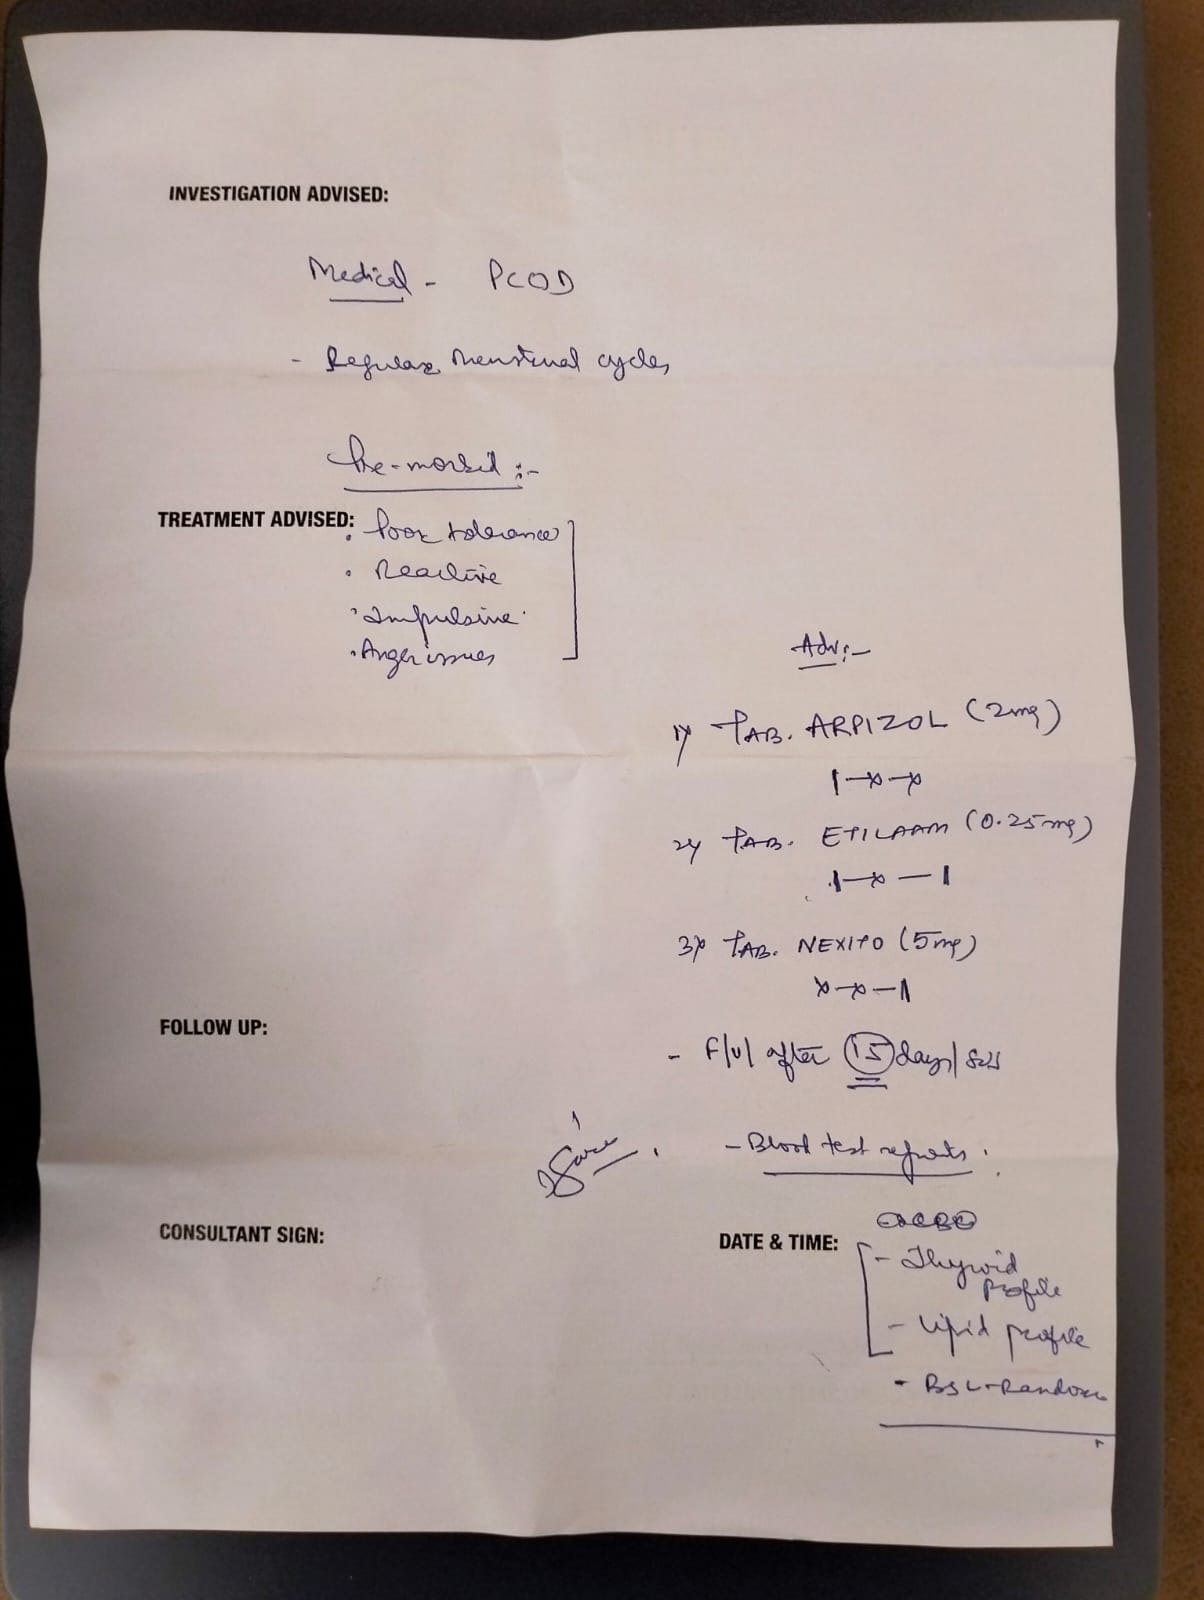 INVESTIGATION ADVISED:
Medical - PCOD
- Regular menstrual cycles
Pre-morbid :-
TREATMENT ADVISED:
• Poor tolerance
• Reactive
• Impulsive
• Anger issues
Adv:-
1) TAB. ARPIZOL (2mg)
1-x-x
2) TAB. ETILAAM (0.25mg)
1-x-1
3) TAB. NEXITO (5mg)
x-x-1
FOLLOW UP:
- F/U/ after 15 days/ SOS
- Blood test reports.
CONSULTANT SIGN:
DATE & TIME:
CBC
- Thyroid
profile
- Lipid profile
- BSL-Random